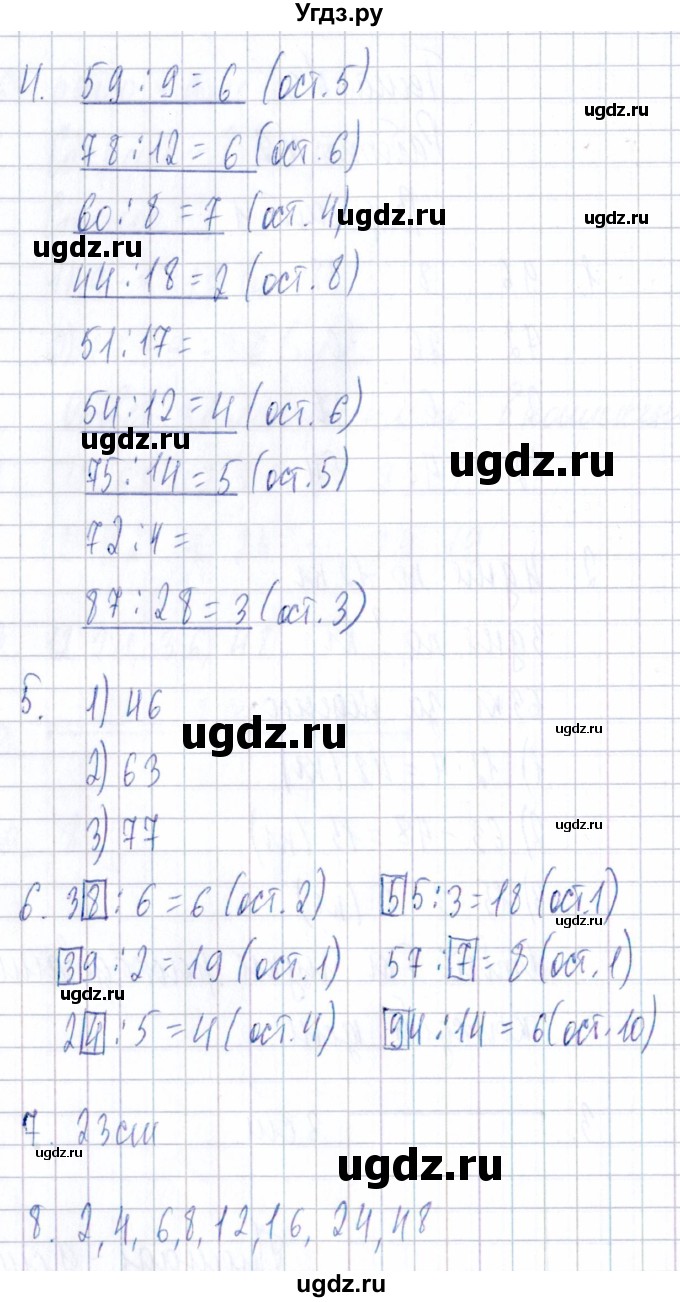 Угдз.ру
4. 59 : 9 = 6 (ост. 5)
ugdz.ru
78 : 12 = 6 (ост. 6)
60 : 8 = 7 (ост. 4)
ugdz.ru
ugdz.ru
ugdz.ru
44 : 18 = 2 (ост. 8)
51 : 17 =
54 : 12 = 4 (ост. 6)
ugdz.ru
ugdz.ru
75 : 14 = 5 (ост. 5)
72 : 4 =
87 : 28 = 3 (ост. 3)
5. 1) 46
ugdz.ru
ugdz.ru
2) 63
3) 77
ugdz.ru
6. 38 : 6 = 6 (ост. 2) 55 : 3 = 18 (ост. 1)
ugdz.ru
39 : 2 = 19 (ост. 1) 57 : 7 = 8 (ост. 1)
ugdz.ru
24 : 5 = 4 (ост. 4) 94 : 14 = 6 (ост. 10)
7. 23 см
ugdz.ru
ugdz.ru
8. 2, 4, 6, 8, 12, 16, 24, 48
ugdz.ru